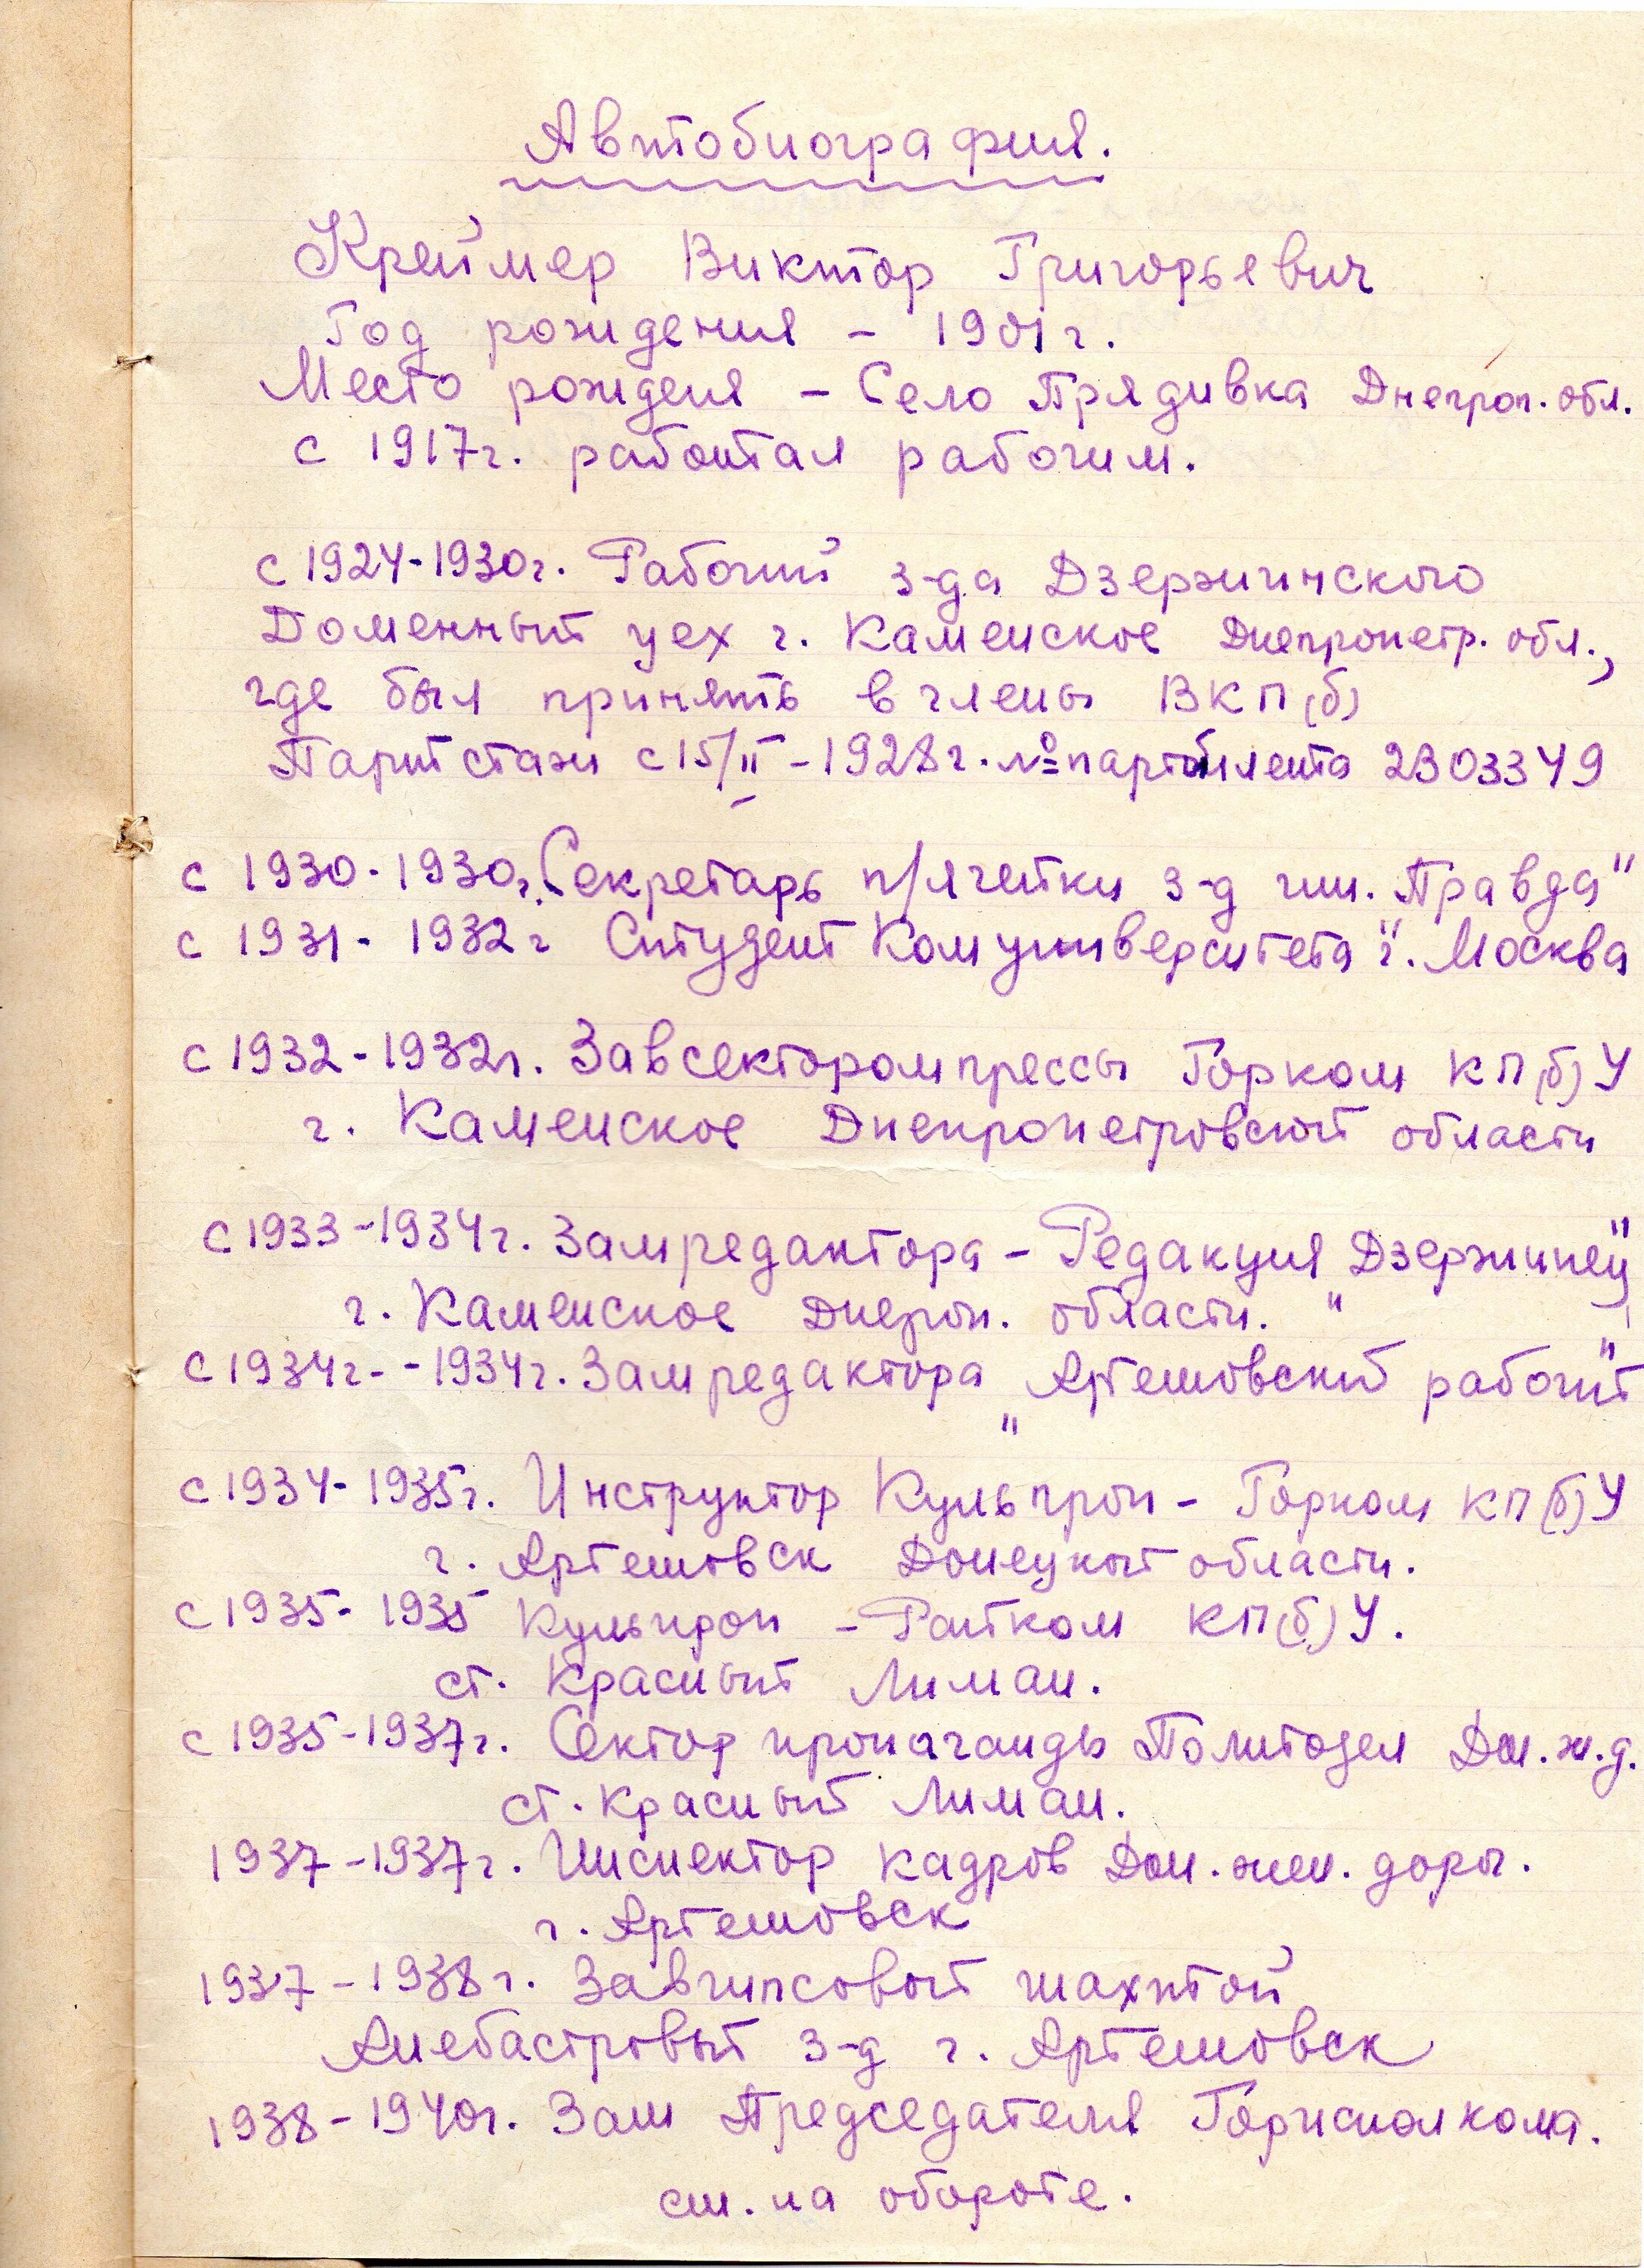 Автобиография.
Креймер Виктор Григорьевич
Год рождения – 1901 г.
Место рождения – Село Прядивка Днепроп. обл.
с 1917 г. работал рабочим.
с 1924-1930 г. Рабочий з-да Дзержинского
Доменный цех г. Каменское Днепропетр. обл.,
где был принять в члены ВКП(б)
Партстаж с 15/II – 1928 г. № партбилета 2303349
с 1930-1930 г. Секретарь п/ячейки з-д им. Правда"
с 1931 - 1932 г Студент Комуниверситета" г. Москва
с 1932-1932 г. Завсектором прессы Горком КП(б)У
г. Каменское Днепропетровской области
с 1933-1934 г. Замредактора – Редакция "Дзержинец"
г. Каменское Днепроп. области.
с 1934 г. - 1934 г. Замредактора "Артемовский рабочий"
с 1934-1935 г. Инструктор Культпроп – Горком КП(б)У
г. Артемовск Донецкой области.
с 1935-1935 Культпроп – Райком КП(б)У.
ст. Красный Лиман.
с 1935-1937 г. Сектор пропаганды Политодел Дон. ж.д.
ст. Красный Лиман.
1937-1937 г. Инспектор кадров Дон. жел. дорог.
г. Артемовск
1937-1938 г. Завгипсовой шахтой
Алебастровый з-д г. Артемовск
1938-1940 г. Зам Председателя Горисполкома.
см. на обороте.